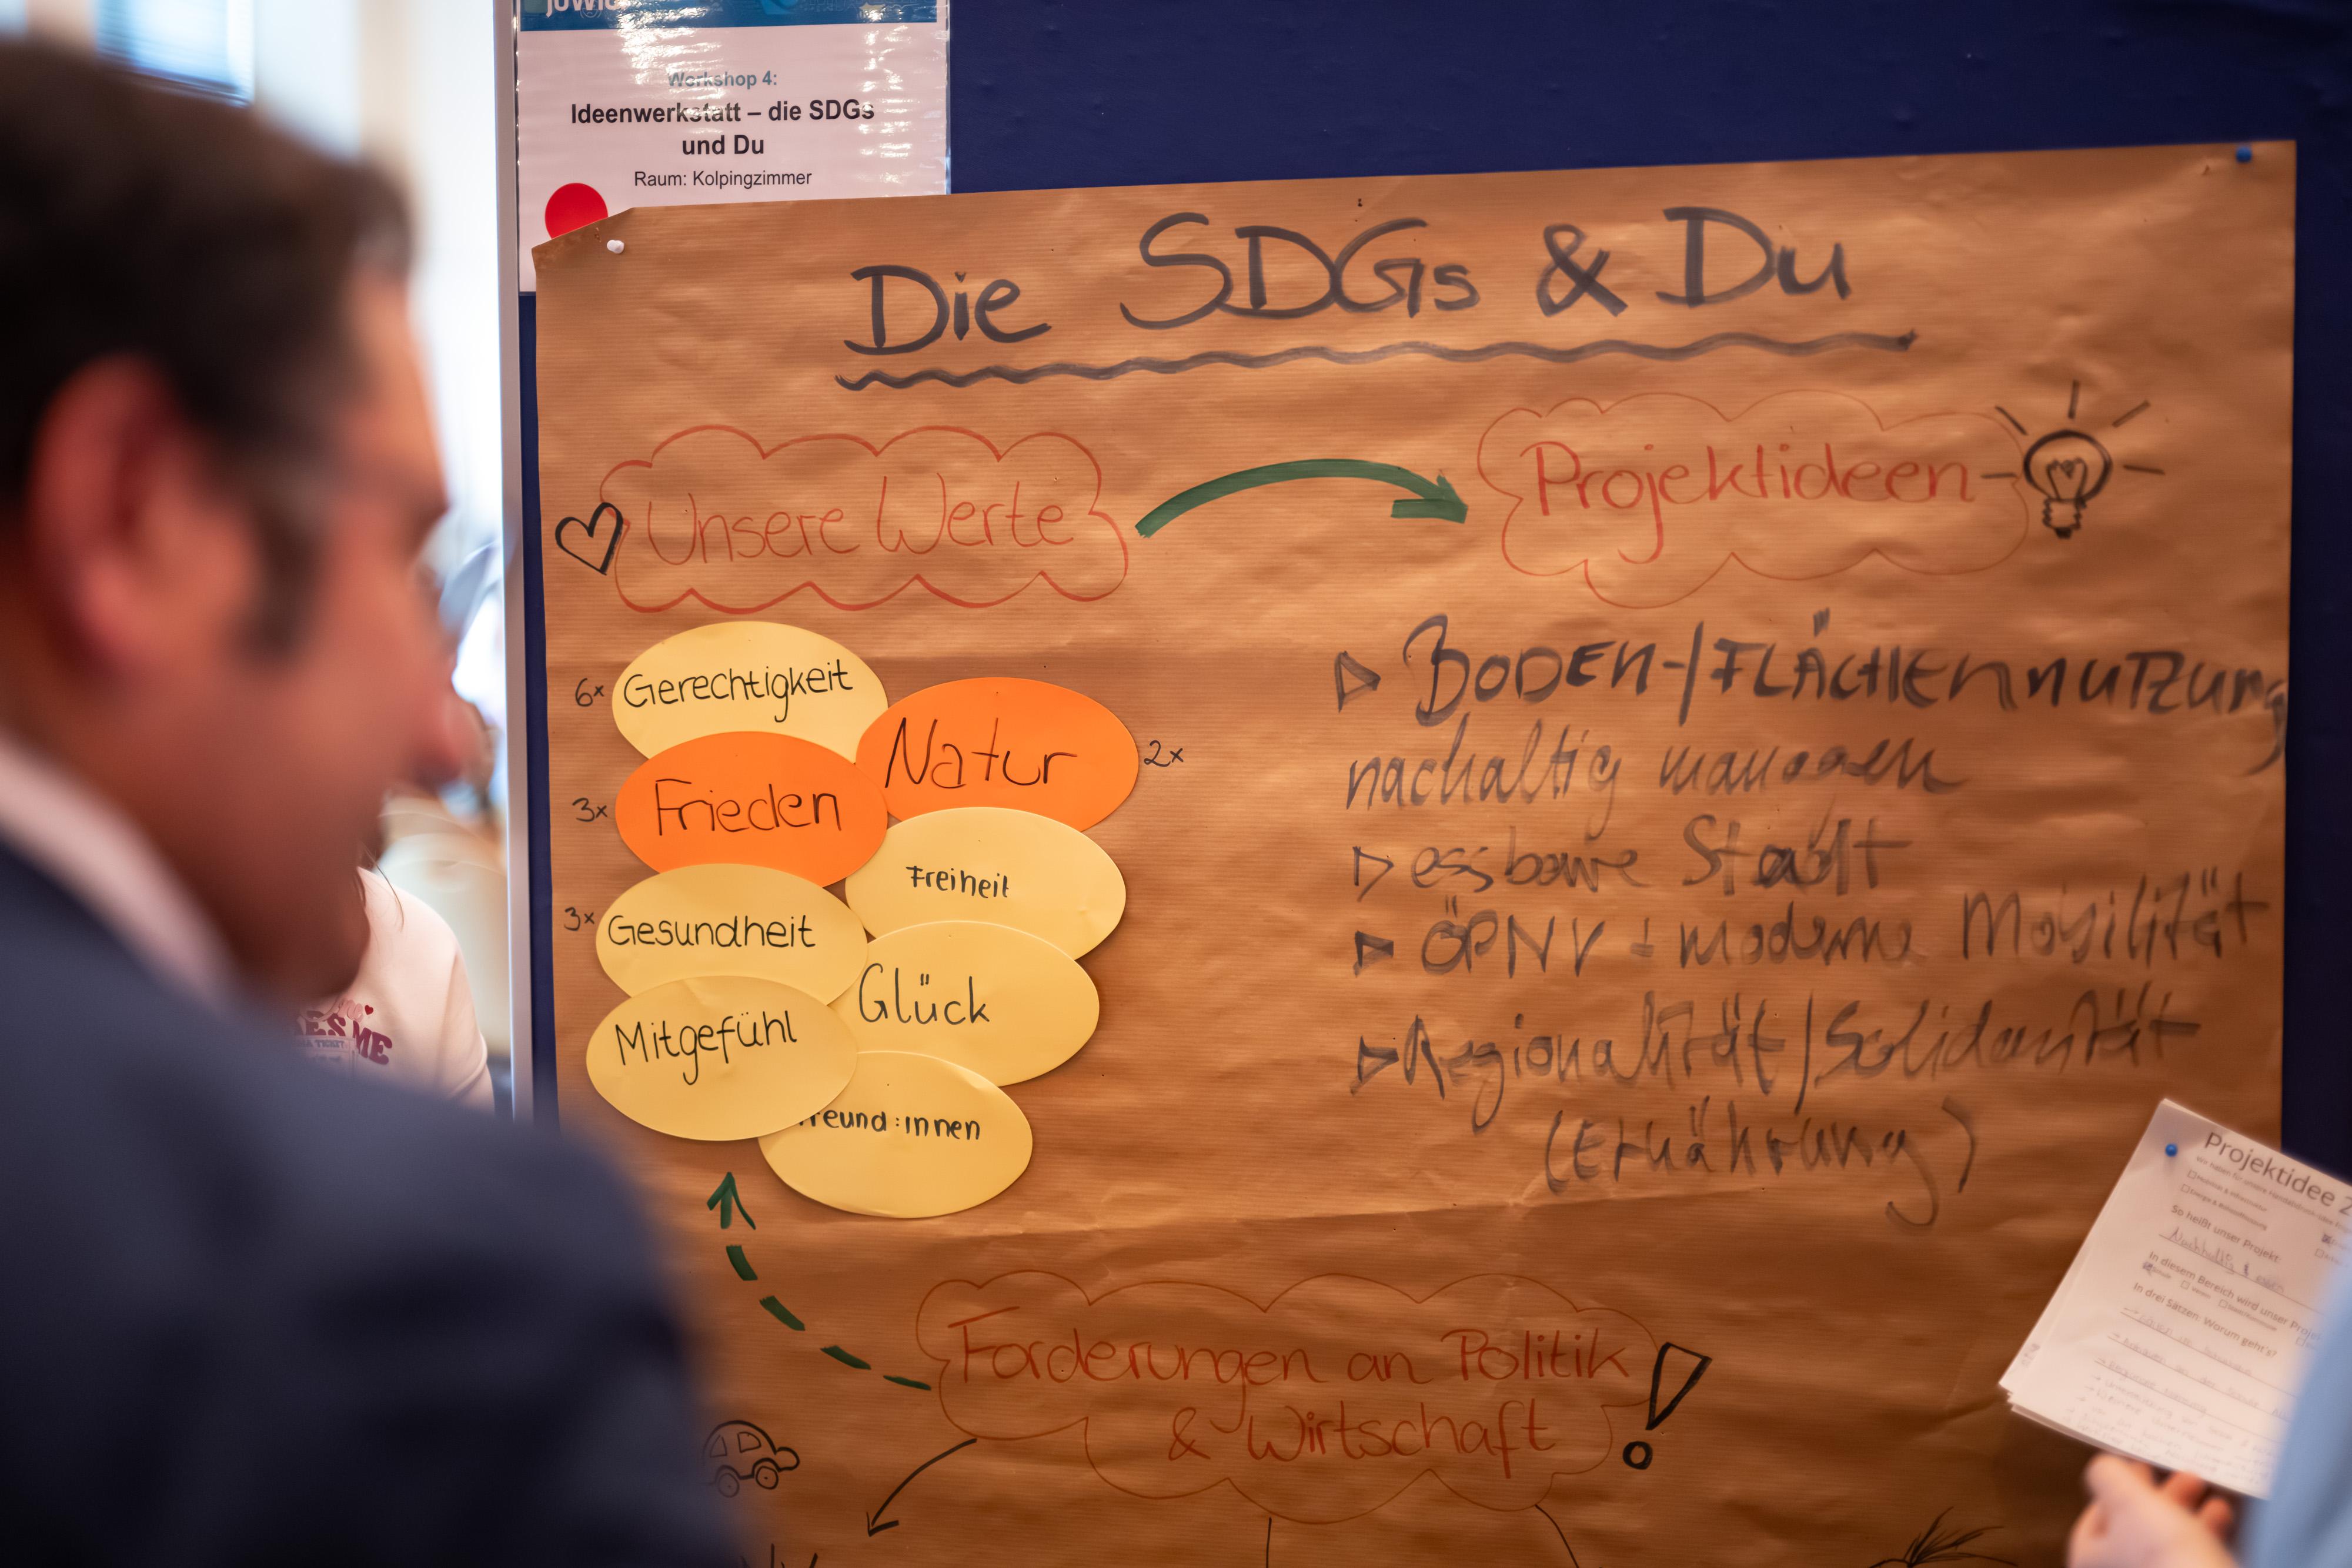 Workshop 4:
Ideenwerkstatt – die SDGs
und Du
Raum: Kolpingzimmer
Die SDGs & Du
Unsere Werte
Projektideen
6x Gerechtigkeit
Natur 2x
3x Frieden
Freiheit
3x Gesundheit
Glück
Mitgefühl
reund:innen
▷ BODEN-/FLÄCHENNUTZUNG
nachhaltig managen
▷ essbare Stadt
▷ ÖPNV + moderne Mobilität
▷ Regionalität/Solidarität
(Ernährung)
Forderungen an Politik
& Wirtschaft
!
Projektidee 2
So heißt unser Projekt:
In diesem Bereich wird unser
In drei Sätzen: Worum geht's?